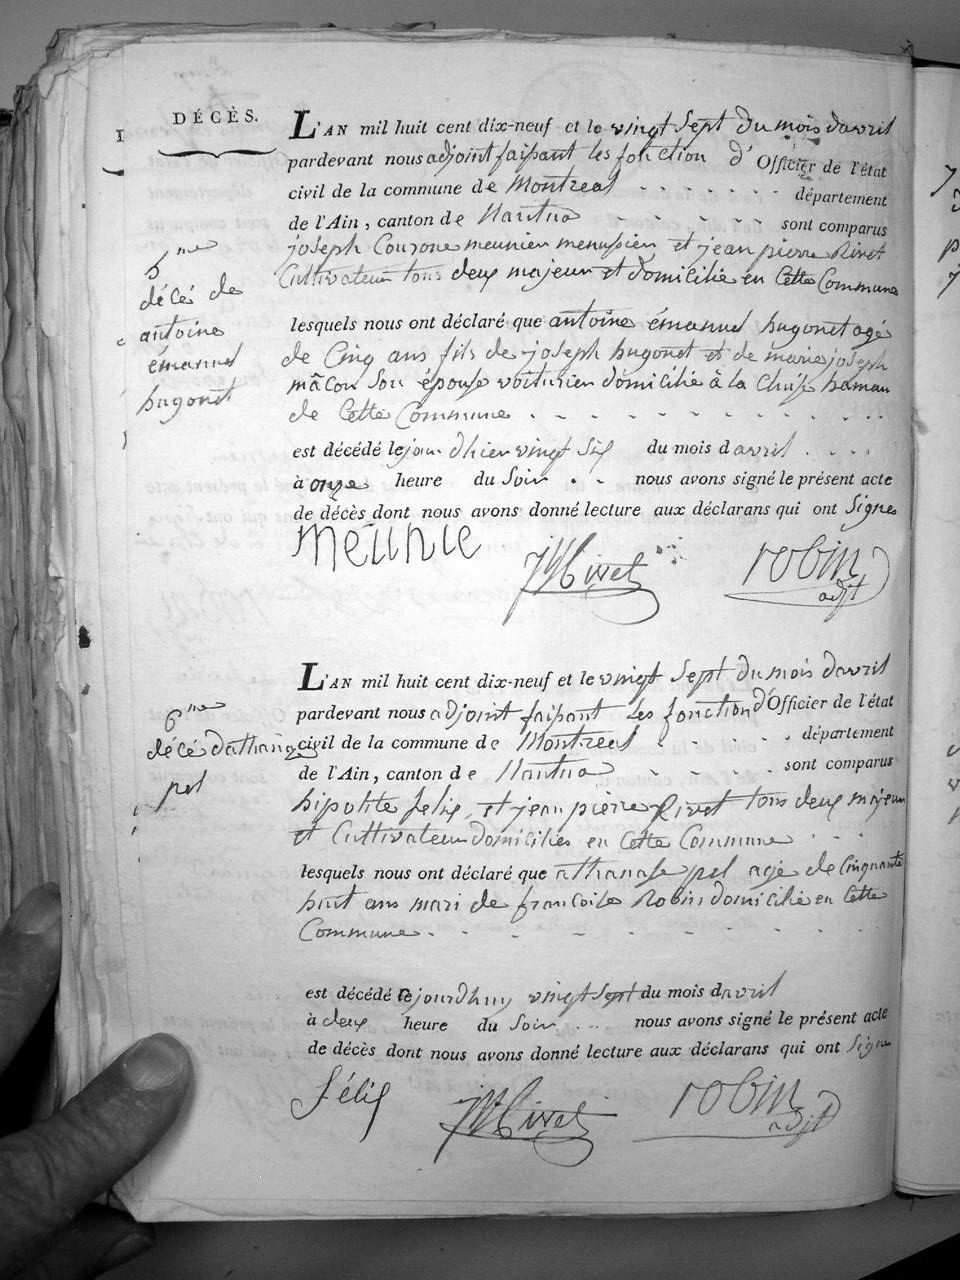 1
DÉCÈS.
L'AN mil huit cent dix-neuf et le vingt sept du mois davril
pardevant nous adjoint faisant les fonction d' Officier de l'état
civil de la commune de Montreal département
de l'Ain, canton de Nantua sont comparus
joseph Couronne meunier menusier et jean pierre Rivet
Cultivateur tous deux majeur et domicilié en Cette Commune
5me
décé de
antoine
émanuel
hugonet
lesquels nous ont déclaré que antoine émanuel hugonet agé
de Cinq ans fils de joseph hugonet et de marie joseph
mâcon son épouse voiturier domicilié à la Cluse hamau
de Cette Commune
est décédé le jour dhier vingt six du mois davril
à onze heure du Soir nous avons signé le présent acte
de décès dont nous avons donné lecture aux déclarans qui ont Signe
meunie
JP Rivet
robin
adjt
L'AN mil huit cent dix-neuf et le vingt Sept du mois davril
pardevant nous adjoint faisant les fonction d'Officier de l'état
6me
décé dathanaz
pel
civil de la commune de Montreal département
de l'Ain, canton de Nantua sont comparus
hipolite felix, et jean pierre Rivet tous deux majeur
et Cultivateur domiciliés en Cette Commune
lesquels nous ont déclaré que athanase pel agé de Cinquante
huit ans mari de francoise Robin domicilié en Cette
Commune
est décédé le jourdhuy vingt Sept du mois davril
à deux heure du Soir nous avons signé le présent acte
de décès dont nous avons donné lecture aux déclarans qui ont Signe
félix
JP Rivet
robin
adjt